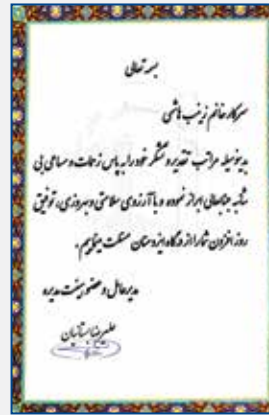 بسمه تعالی
سرکار خانم زینب هاشمی
بدینوسیله مراتب تقدیر و تشکر خود را به پاس زحمات و مساعی بی
شائبه جنابعالی ابراز نموده و با آرزوی سلامتی و بهروزی، توفیق
روز افزون شما را از درگاه ایزد منان مسئلت مینمایم.
مدیرعامل و عضو هیئت مدیره
علیرضا استادیان